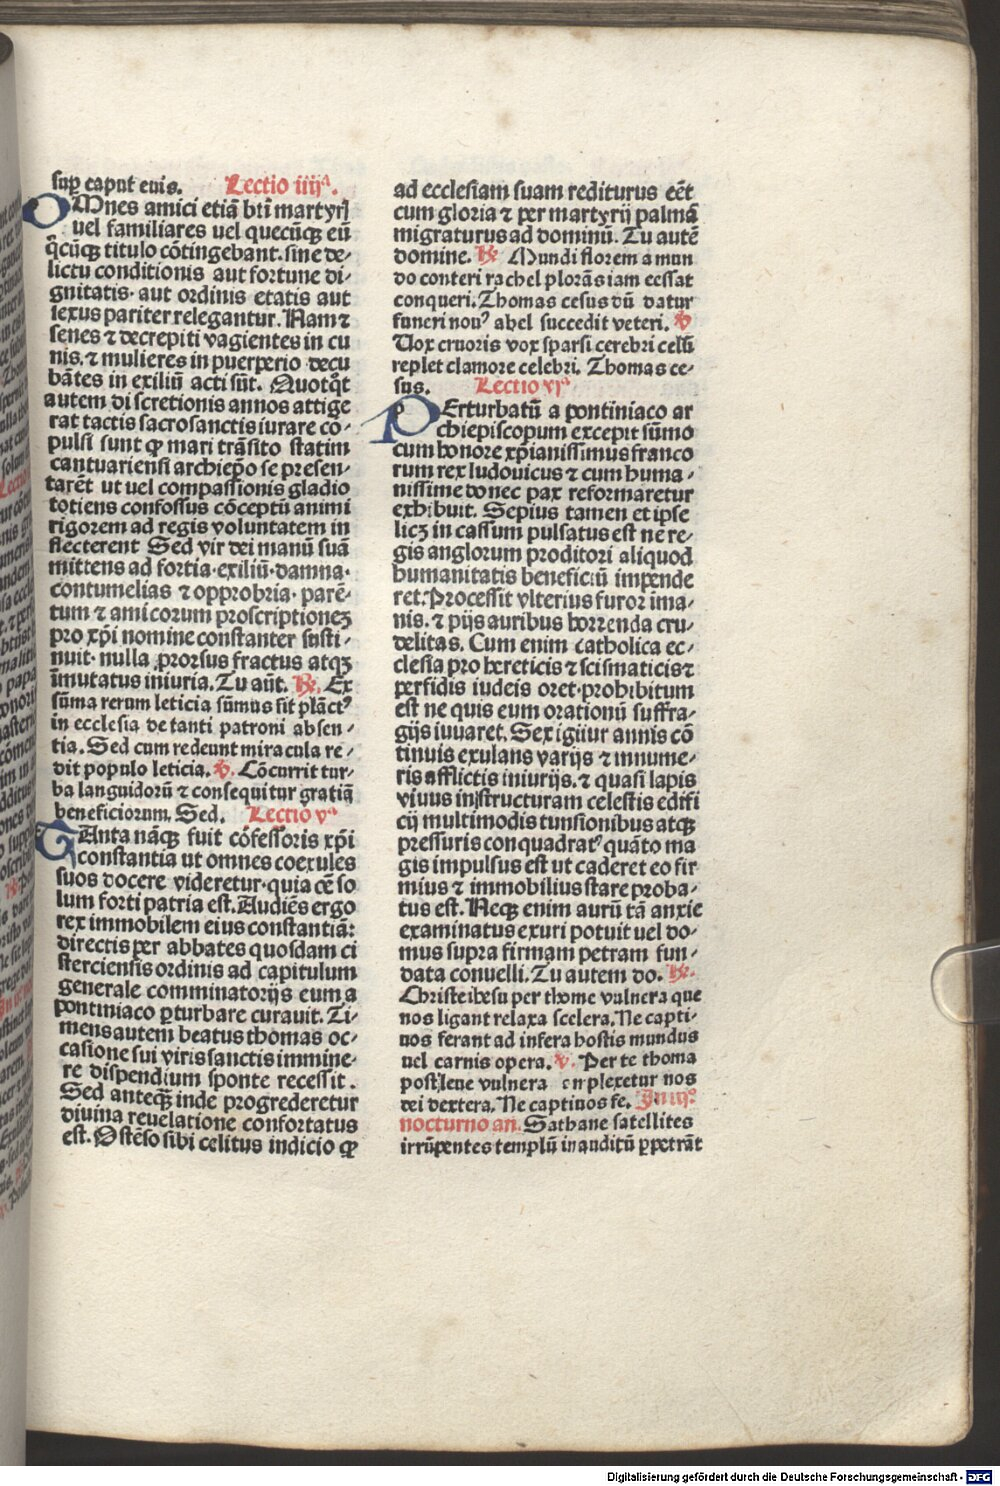 sup caput eius. Lectio iiijª.
OMnes amici etiā bti martyrꝭ
uel familiares uel quecūqꝫ eū
q̄cūqꝫ titulo cōtingebant. sine de⸗
lictu conditionis aut fortune di⸗
gnitatis· aut ordinis etatis aut
sexus pariter relegantur. Nam ⁊
senes ⁊ decrepiti vagientes in cu
nis. ⁊ mulieres in puerperio decu
bātes in exiliū acti sūt. Quotqͦt
autem discretionis annos attige
rat tactis sacrosanctis iurare cō⸗
pulsi sunt ꝙ mari trāsito statim
cantuariensi archiepo se presen⸗
tarēt ut uel compassionis gladio
totiens confossus cōceptū animi
rigorem ad regis voluntatem in
flecterent Sed vir dei manū suā
mittens ad fortia·exiliū·damna·
contumelias ⁊ opprobria· parē⸗
tum ⁊ amicorum proscriptioneꝫ
pro xp̄i nomine constanter susti⸗
nuit· nulla prorsus fractus atqꝫ
īmutatus iniuria. Tu aūt. ℟. Ex
sūma rerum leticia sūmus fit plāctꝰ
in ecclesia de tanti patroni absen⸗
tia. Sed cum redeunt miracula re⸗
dit populo leticia. ℣. Cōcurrit tur⸗
ba languidorū ⁊ consequitur gratiā
beneficiorum. Sed. Lectio vª
TAnta nāqꝫ fuit cōfessoris xp̄i
constantia ut omnes coexules
suos docere videretur·quia cē so
lum forti patria est. Audiēs ergo
rex immobilem eius constantiā:
directis per abbates quosdam ci
sterciensis ordinis ad capitulum
generale comminatorijs eum a
pontiniaco ꝑturbare curauit. Ti⸗
mens autem beatus thomas oc⸗
casione sui viris sanctis immine⸗
re dispendium sponte recessit.
Sed anteqꝫ inde progrederetur
diuina reuelatione confortatus
est. Ostēso sibi celitus indicio ꝙ
ad ecclesiam suam rediturus eēt
cum gloria ⁊ per martyrij palmā
migraturus ad dominū. Tu autē
domine. ℟ Mundi florem a mun
do conteri rachel plorās iam cessat
conqueri. Thomas cesus dū datur
funeri nouꝰ abel succedit veteri. ℣
Uox cruoris vox sparsi cerebri celū
replet clamore celebri. Thomas ce⸗
sus. Lectio vjª
PErturbatū a pontiniaco ar
chiepiscopum excepit sūmo
cum honore xp̄ianissimus franco
rum rex ludouicus ⁊ cum huma⸗
nissime donec pax reformaretur
exhibuit. Sepius tamen et ipse
licꝫ in cassum pulsatus est ne re⸗
gis anglorum proditori aliquod
humanitatis beneficiū impende
ret: Processit vlterius furor ima⸗
nis. ⁊ pijs auribus horrenda cru⸗
delitas. Cum enim catholica ec⸗
clesia pro hereticis ⁊ scismaticis ⁊
perfidis iudeis oret·prohibitum
est ne quis eum orationū suffra⸗
gijs iuuaret. Sex igitur annis cō
tinuis exulans varijs ⁊ innume⸗
ris afflictis iniurijs. ⁊ quasi lapis
viuus in structuram celestis edifi
cij multimodis tunsionibus atqꝫ
pressuris conquadratꝰ quāto ma
gis impulsus est ut caderet eo fir
mius ⁊ immobilius stare proba⸗
tus est. Neqꝫ enim aurū tā anxie
examinatus exuri potuit uel do⸗
mus supra firmam petram fun⸗
data conuelli. Tu autem do. ℟.
Christe ihesu per thome vulnera que
nos ligant relaxa scelera. Ne capti⸗
uos ferant ad infera hostis mundus
uel carnis opera. ℣. Per te thoma
post leue vulnera cnplexetur nos
dei dextera. Ne captiuos fe. In iijº
nocturno an. Sathane satellites
irrūpentes templū inauditū ꝑpetrāt
Digitalisierung gefördert durch die Deutsche Forschungsgemeinschaft - DFG